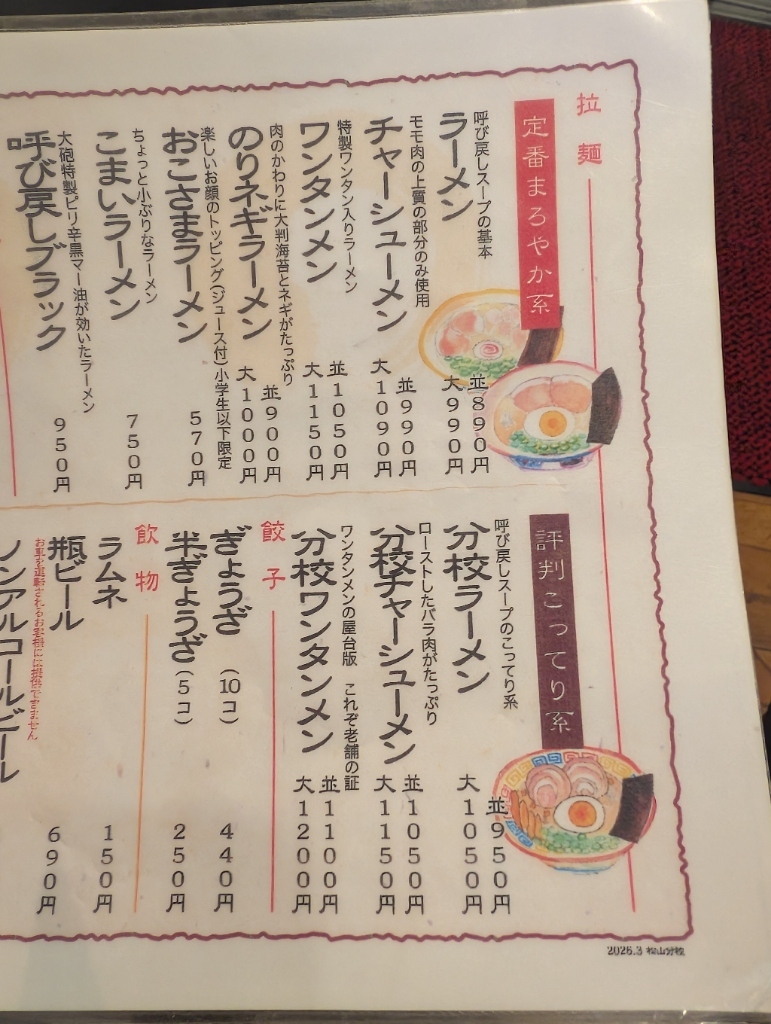 拉麺
定番まろやか系
呼び戻しスープの基本
ラーメン
並890円
大990円
モモ肉の上質の部分のみ使用
チャーシューメン
並990円
大1090円
特製ワンタン入りラーメン
ワンタンメン
並1050円
大1150円
肉のかわりに大判海苔とネギがたっぷり
のりネギラーメン
並900円
大1000円
楽しいお顔のトッピング(ジュース付)小学生以下限定
おこさまラーメン
570円
ちょっと小ぶりなラーメン
こまいラーメン
750円
大砲特製ピリ辛黒マー油が効いたラーメン
呼び戻しブラック
950円
評判こってり系
呼び戻しスープのこってり系
分校ラーメン
並950円
大1050円
ローストしたバラ肉がたっぷり
分校チャーシューメン
並1050円
大1150円
ワンタンメンの屋台版 これぞ老舗の証
分校ワンタンメン
並1100円
大1200円
餃子
ぎょうざ(10コ)
440円
半ぎょうざ(5コ)
250円
飲物
ラムネ
150円
瓶ビール
690円
お車を運転されるお客様には提供できません
ノンアルコールビール
2026.3 松山分校